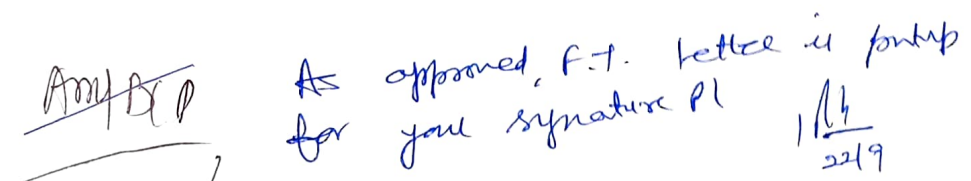 As approved, F.T. Letter is putup
for your signature Pl
22/9